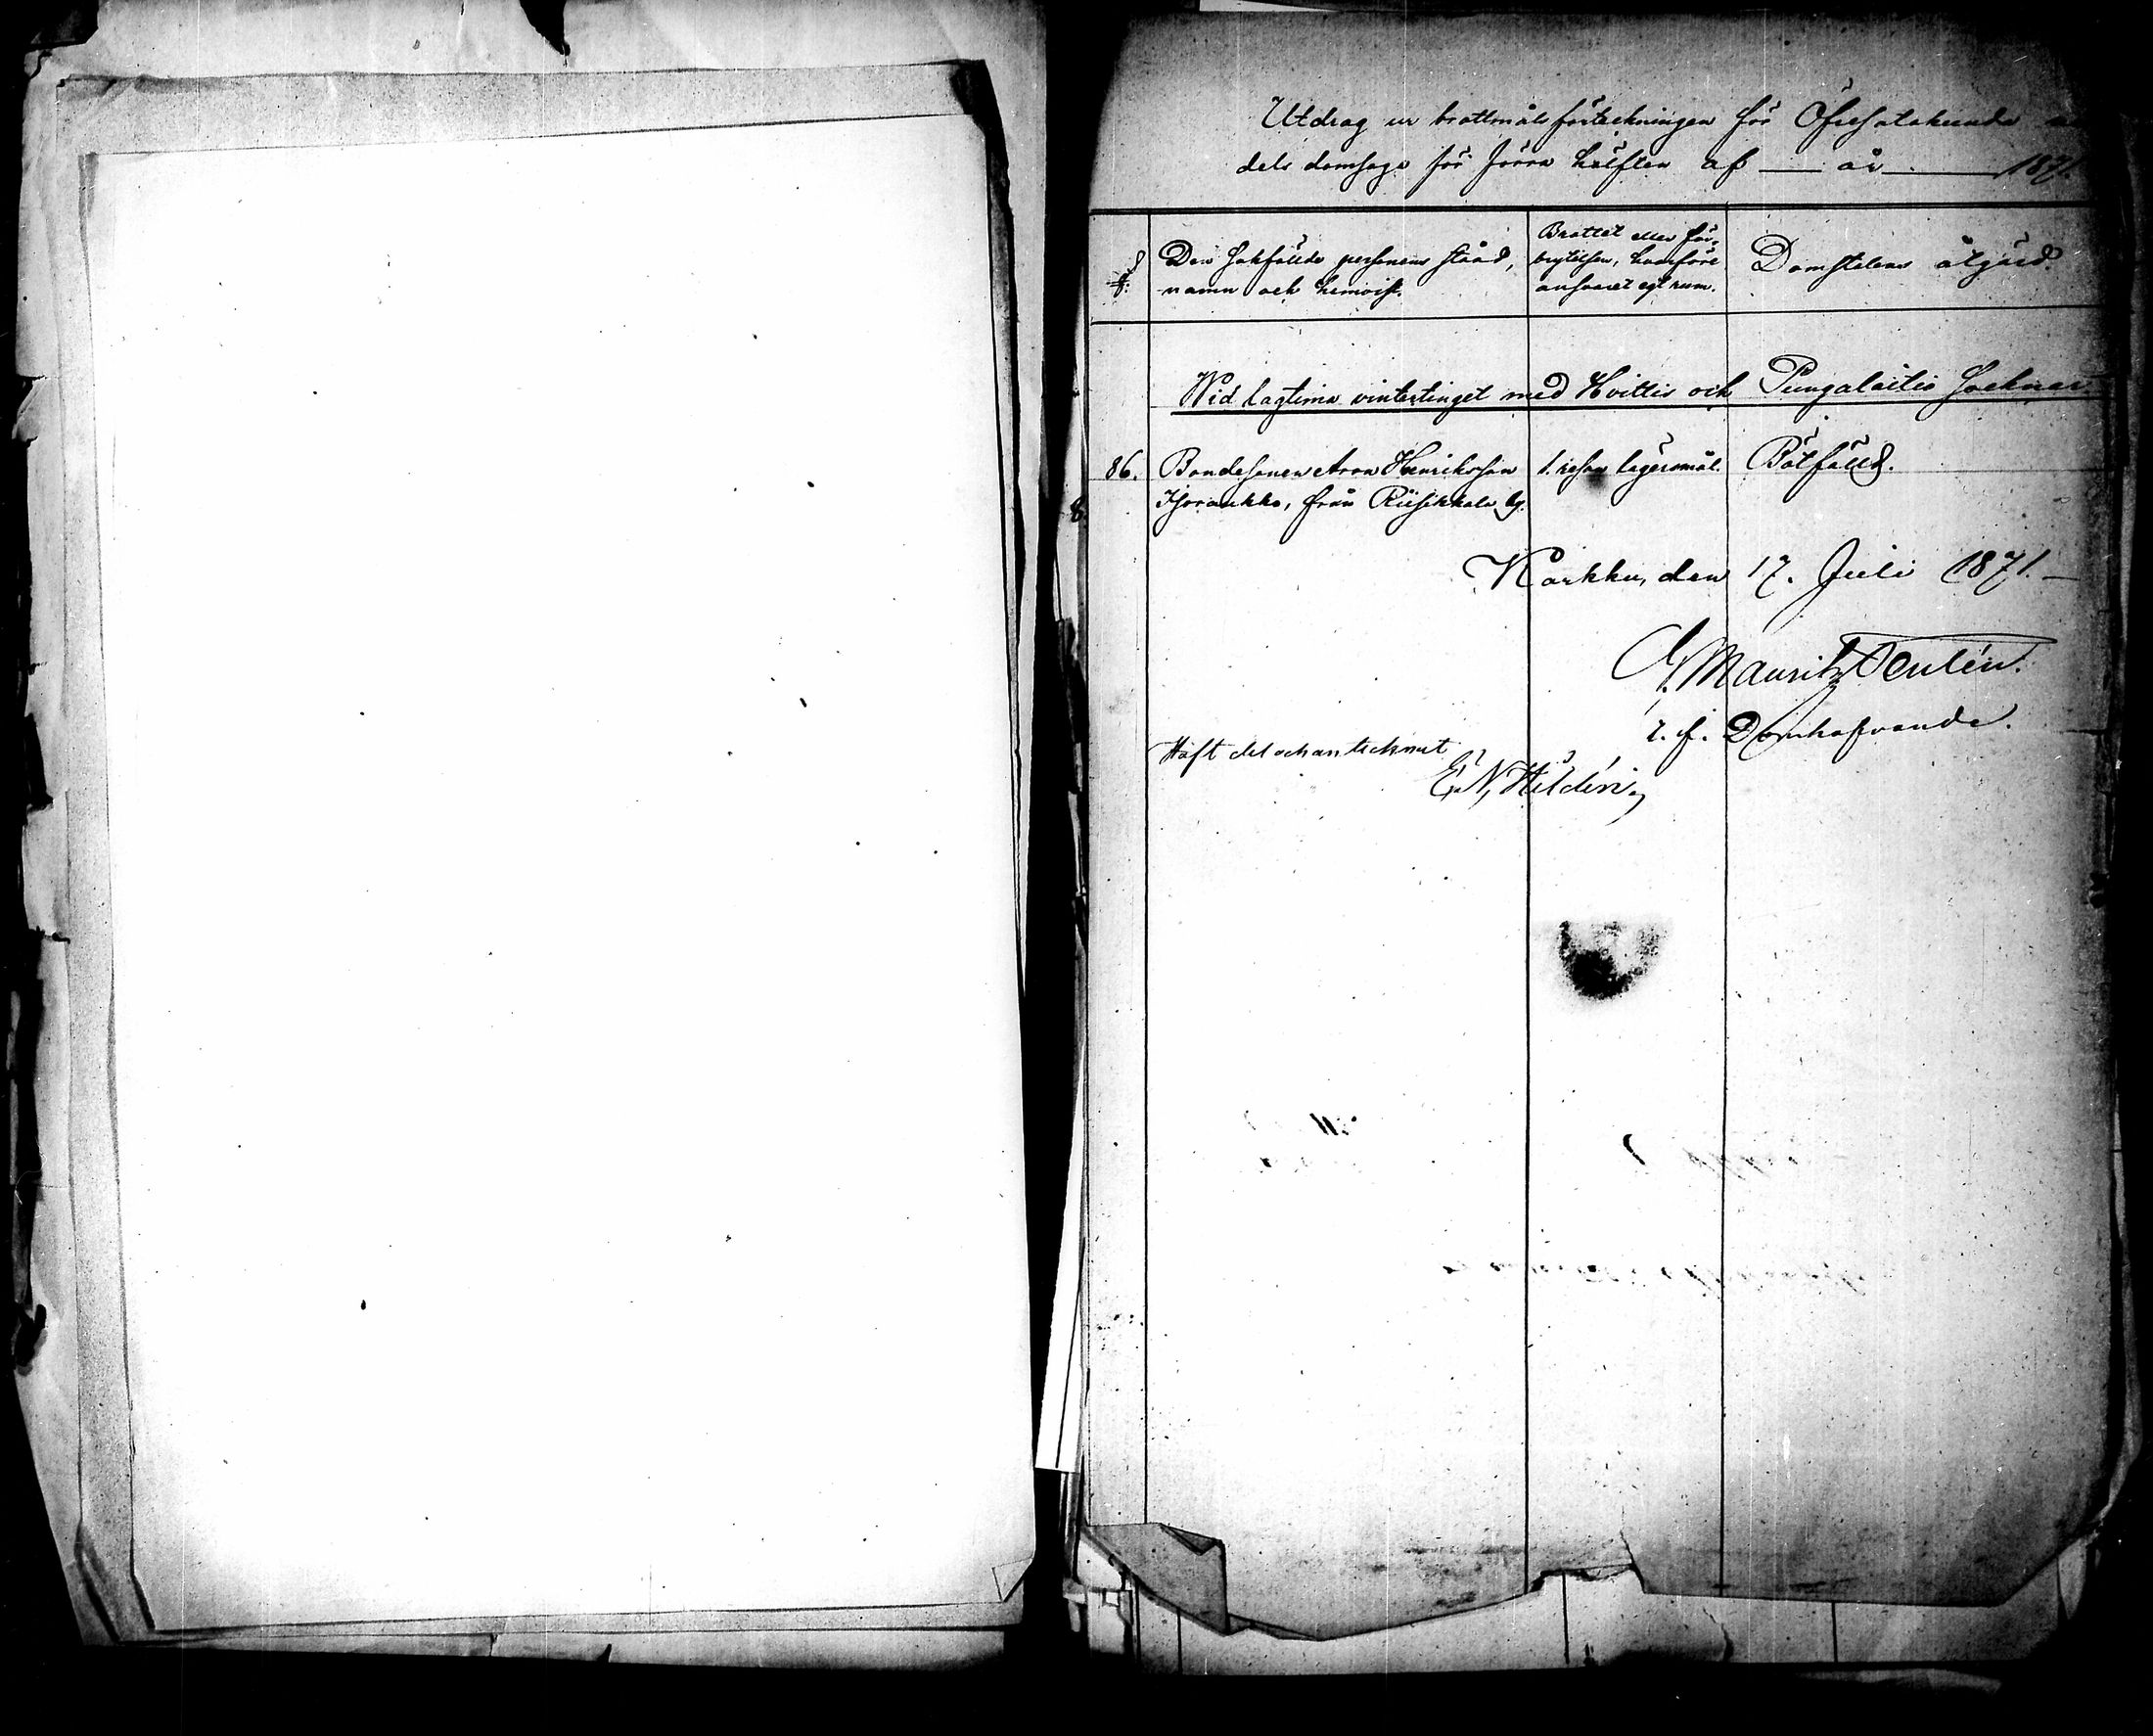 Utdrag ur brottmålsförteckningen för Öfresatakunda
dels domsaga för förra hälften af — år — 1871.
Den sakfällde personens stånd,
namn och hemvist.
Brottet eller för-
brytelsen, hvarföre
ansvaret egt rum.
Domstolens åtgärd.
Wid lagtima vintertinget med Hvittis och Pungalaitio socknar.
86. Bondesonen Aron Henriksson 1. resan lägersmål. Botfälld.
från Riisikkala by.
8.
Karkku, den 17. Juli 1871.
Mauritz
t. f. Domhafvande.
Haft del och antecknat
E. N. Hildén